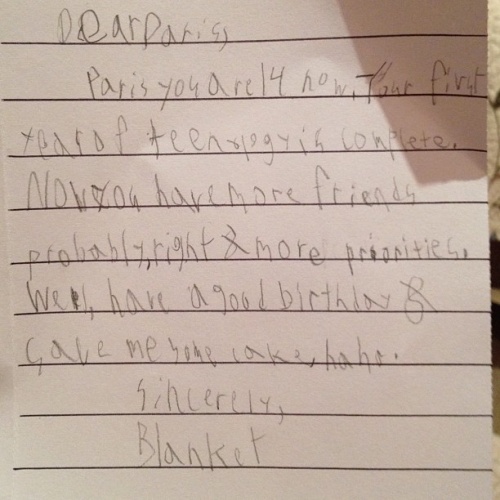 Dear Paris,
Paris you are 14 now. Your first
year of is complete.
Now you have more friends
probably, right & more priorities.
Well, have a good birthday &
Save me some cake, haha.
Sincerely,
Blanket